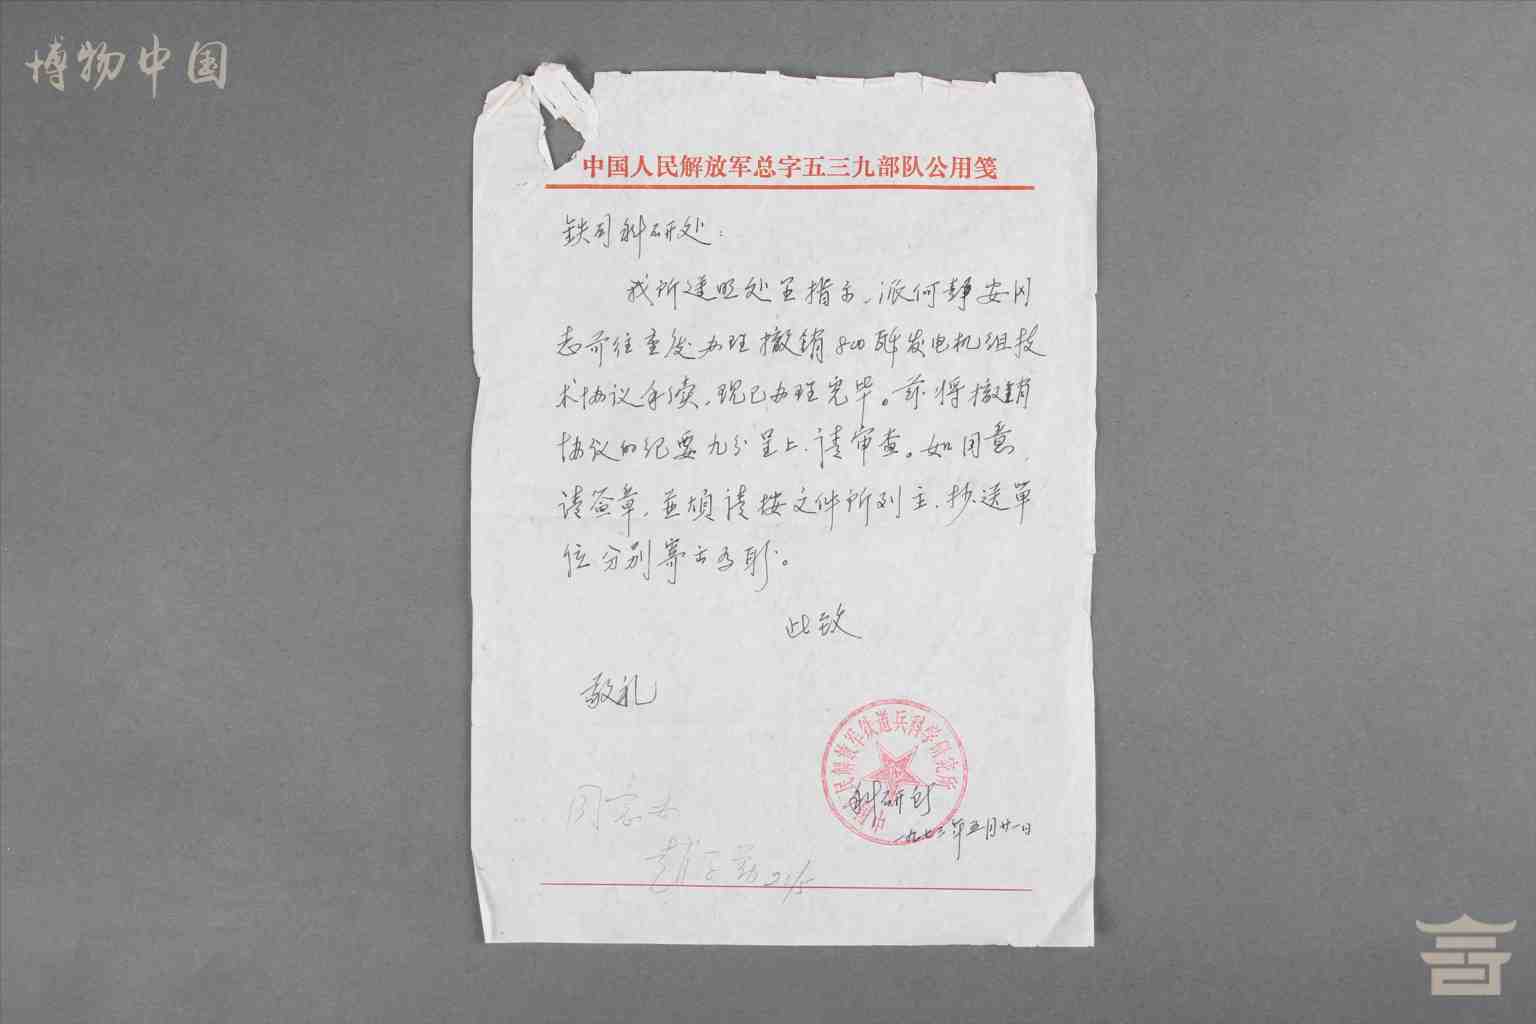 博物中国
中国人民解放军总字五三九部队公用笺
铁司科研处：
我所遵照处里指示，派何静安同
志前往重庆办理撤销800瓩发电机组技
术协议手续，现已办理完毕。兹将撤销
协议的纪要九分呈上，请审查。如同意，
请签章，并烦请按文件所列主、抄送单
位分别寄出为盼。
此致
敬礼
中国人民解放军铁道兵科学研究所
科研所
一九七三年五月廿一日
同意办
21/5